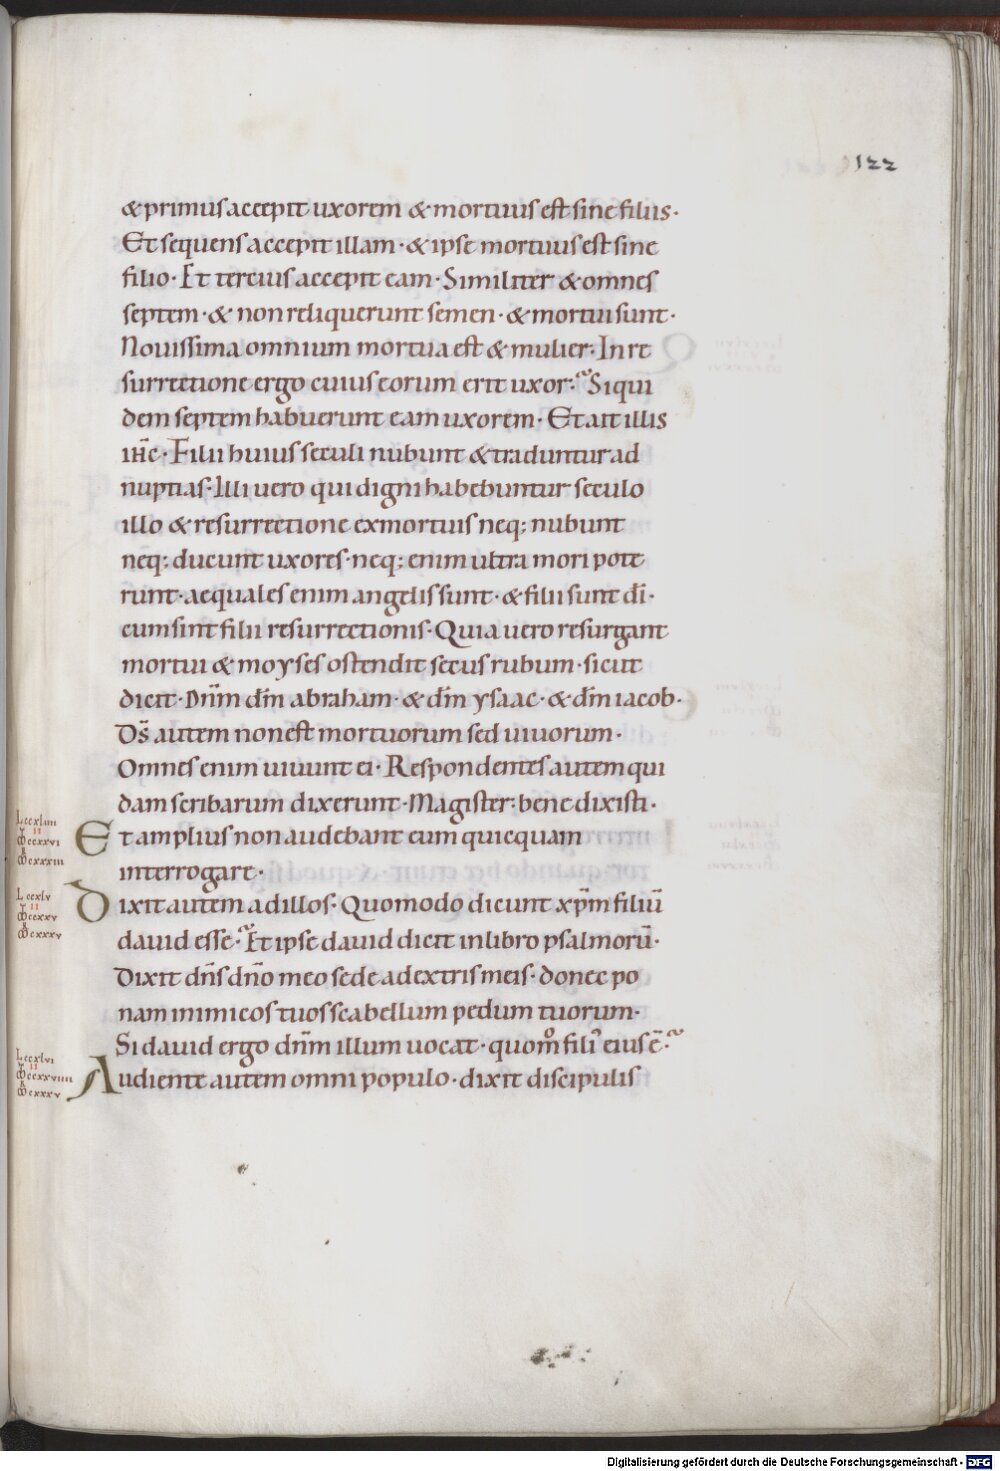 122
& primus accepit uxorem & mortuus est sine filiis·
Et sequens accepit illam· & ipse mortuus est sine
filio· Et tercius accepit eam· Similiter & omnes
septem· & non reliquerunt semen· & mortui sunt·
Nouissima omnium mortua est & mulier· In re
surrectione ergo cuius eorum erit uxor? Siqui
dem septem habuerunt eam uxorem· Et ait illis
ihc̄· Filii huius seculi nubunt & traduntur ad
nuptias· Illi uero qui digni habebuntur seculo
illo & resurrectione ex mortuis neq; nubunt
neq; ducunt uxores· neq; enim ultra mori pote
runt· aequales enim angelis sunt· & filii sunt dī·
cum sint filii resurrectionis· Quia uero resurgant
mortui & moyses ostendit secus rubum· sicut
dicit· Dn̄m dm̄ abraham· & dm̄ ysaac· & dm̄ iacob·
Ds̄ autem non est mortuorum sed uiuorum·
Omnes enim uiuunt ei· Respondentes autem qui
dam scribarum dixerunt· Magister· bene dixisti·
Et amplius non audebant eum quicquam
interrogare·
Dixit autem ad illos· Quomodo dicunt xp̄m filiū
dauid esse? Et ipse dauid dicit in libro psalmorū·
Dixit dn̄s dn̄o meo sede a dextris meis· donec po
nam inimicos tuos scabellum pedum tuorum·
Si dauid ergo dn̄m illum uocat· quom̊ fili' eius ē?
Audiente autem omni populo· dixit discipulis
Digitalisierung gefördert durch die Deutsche Forschungsgemeinschaft - DFG